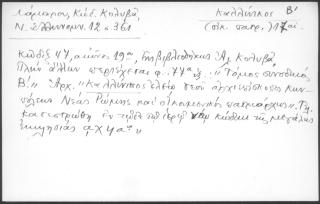 Λάμπρου, Κώδ. Κολυβᾶ,
Ν. Ἑλληνομν. 12 σ. 361
Καλλίνικος Β'
(οἰκ. πατρ.) 17 αἰ.
Κῶδιξ 47, αἰῶνος 19ου, τῆς βιβλιοθήκης Ἀλ. Κολυβᾶ.
Πλὴν ἄλλων περιέχεται φ. 77α "Τόμος συνοδικὸς
Β'" Ἀρχ. "Καλλίνικος ἐλέῳ Θεοῦ ἀρχιεπίσκοπος Κων-
πόλεως Νέας Ῥώμης καὶ οἰκουμενικὸς πατριάρχης". Τελ.
κατεστρώθη ἐν τῷδε τῷ ἱερῷ κώδικι τῆς μεγάλης
ἐκκλησίας